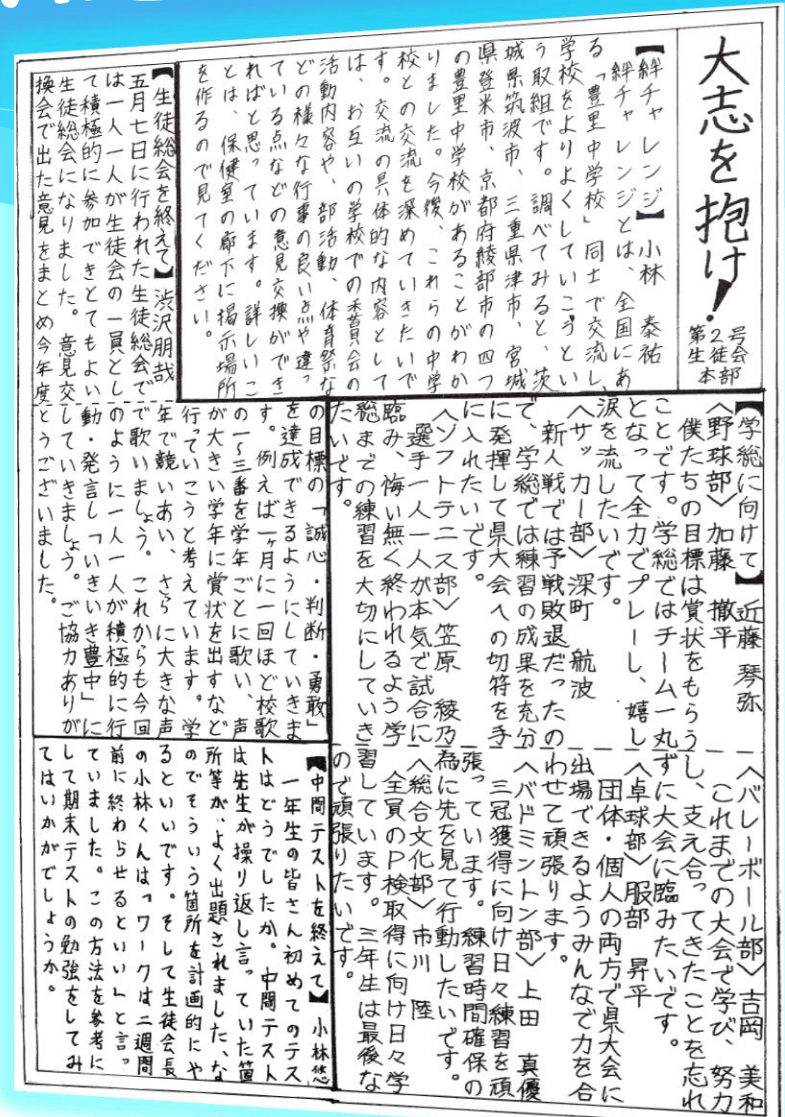 大志を抱け!
第2号
生徒会
本部
【絆チャレンジ】 小林 泰祐
絆チャレンジとは、全国にあ
る「豊里中学校」同士で交流し、
学校をよりよくしていこうとい
う取組です。調べてみると、茨
城県筑波市、三重県津市、宮城
県登米市、京都府綾部市の四つ
の豊里中学校があることがわか
りました。今後、これらの中学
校との交流を深めていきたいで
す。交流の具体的な内容として
は、お互いの学校での委員会の
活動内容や、部活動、体育祭な
どの様々な行事の良い点や違っ
ている点などの意見交換ができ
ればと思っています。詳しいこ
とは、保健室の廊下に掲示場所
を作るので見てください。
【生徒総会を終えて】 渋沢朋哉
五月七日に行われた生徒総会で
は一人一人が生徒会の一員とし
て積極的に参加できとてもよい
生徒総会になりました。意見交
換会で出た意見をまとめ今年度
の目標の「誠心・判断・勇敢」
を達成できるようにしていきま
す。例えば一ヶ月に一回ほど校歌
の一~三番を学年ごとに歌い、声
が大きい学年に賞状を出すなど
行っていこうと考えています。学
年で競いあい、さらに大きな声
で歌いましょう。これからも今回
のように一人一人が積極的に行
動・発言し「いきいき豊中」に
していきましょう。ご協力ありが
とうございました。
【学総に向けて】 近藤 琴弥
〈野球部〉 加藤 撤平
僕たちの目標は賞状をもらう
ことです。学総ではチーム一丸
となって全力でプレーし、嬉し
涙を流したいです。
〈サッカー部〉 深町 航波
新人戦では予戦敗退だったの
で、学総では練習の成果を充分
に発揮して県大会への切符を手
に入れたいです。
〈ソフトテニス部〉 笠原 綾乃
選手一人一人が本気で試合に
臨み、悔い無く終われるよう学
総までの練習を大切にしていき
たいです。
〈バレーボール部〉 吉岡 美和
これまでの大会で学び、努力
し、支え合ってきたことを忘れ
ずに大会に臨みたいです。
〈卓球部〉 服部 昇平
団体・個人の両方で県大会に
出場できるようみんなで力を合
わせて頑張ります。
〈バドミントン部〉 上田 真優
三冠獲得に向け日々練習を頑
張っています。練習時間確保の
為に先を見て行動したいです。
〈総合文化部〉 市川 陸
全員のP検取得に向け日々学
習しています。三年生は最後な
ので頑張りたいです。
【中間テストを終えて】 小林悠
一年生の皆さん初めてのテス
トはどうでしたか。中間テスト
は先生が操り返し言っていた箇
所等が、よく出題されました、な
のでそういう箇所を計画的にや
るといいです。そして生徒会長
の小林くんは「ワークは二週間
前に終わらせるといい」と言っ
ていました。この方法を参考に
して期末テストの勉強をしてみ
てはいかがでしょうか。